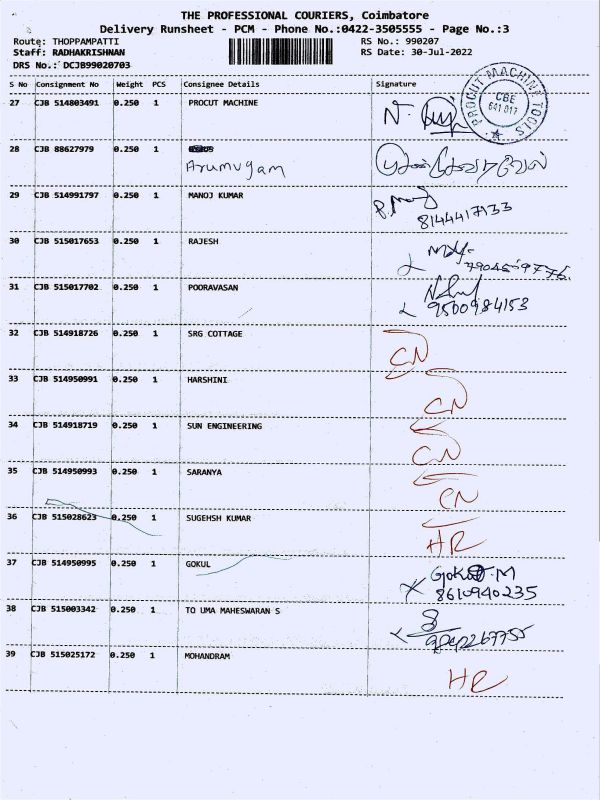 THE PROFESSIONAL COURIERS, Coimbatore
Delivery Runsheet - PCM - Phone No.:0422-3505555 - Page No.:3
Route: THOPPAMPATTI RS No.: 990207
Staff: RADHAKRISHNAN RS Date: 30-Jul-2022
DRS No.: DCJB99020703
S No Consignment No Weight PCS Consignee Details Signature
27 CJB 514803491 0.250 1 PROCUT MACHINE
PROCUT MACHINE TOOLS
CBE
641 017
28 CJB 88627979 0.250 1
Arumugam
29 CJB 514991797 0.250 1 MANOJ KUMAR
8144417133
30 CJB 515017653 0.250 1 RAJESH
31 CJB 515017702 0.250 1 POORAVASAN
9500984153
32 CJB 514918726 0.250 1 SRG COTTAGE
CN
33 CJB 514950991 0.250 1 HARSHINI
CN
34 CJB 514918719 0.250 1 SUN ENGINEERING
CN
35 CJB 514950993 0.250 1 SARANYA
CN
36 CJB 515028623 0.250 1 SUGEHSH KUMAR
HR
37 CJB 514950995 0.250 1 GOKUL
Gokul.M
8610940235
38 CJB 515003342 0.250 1 TO UMA MAHESWARAN S
39 CJB 515025172 0.250 1 MOHANDRAM
HR